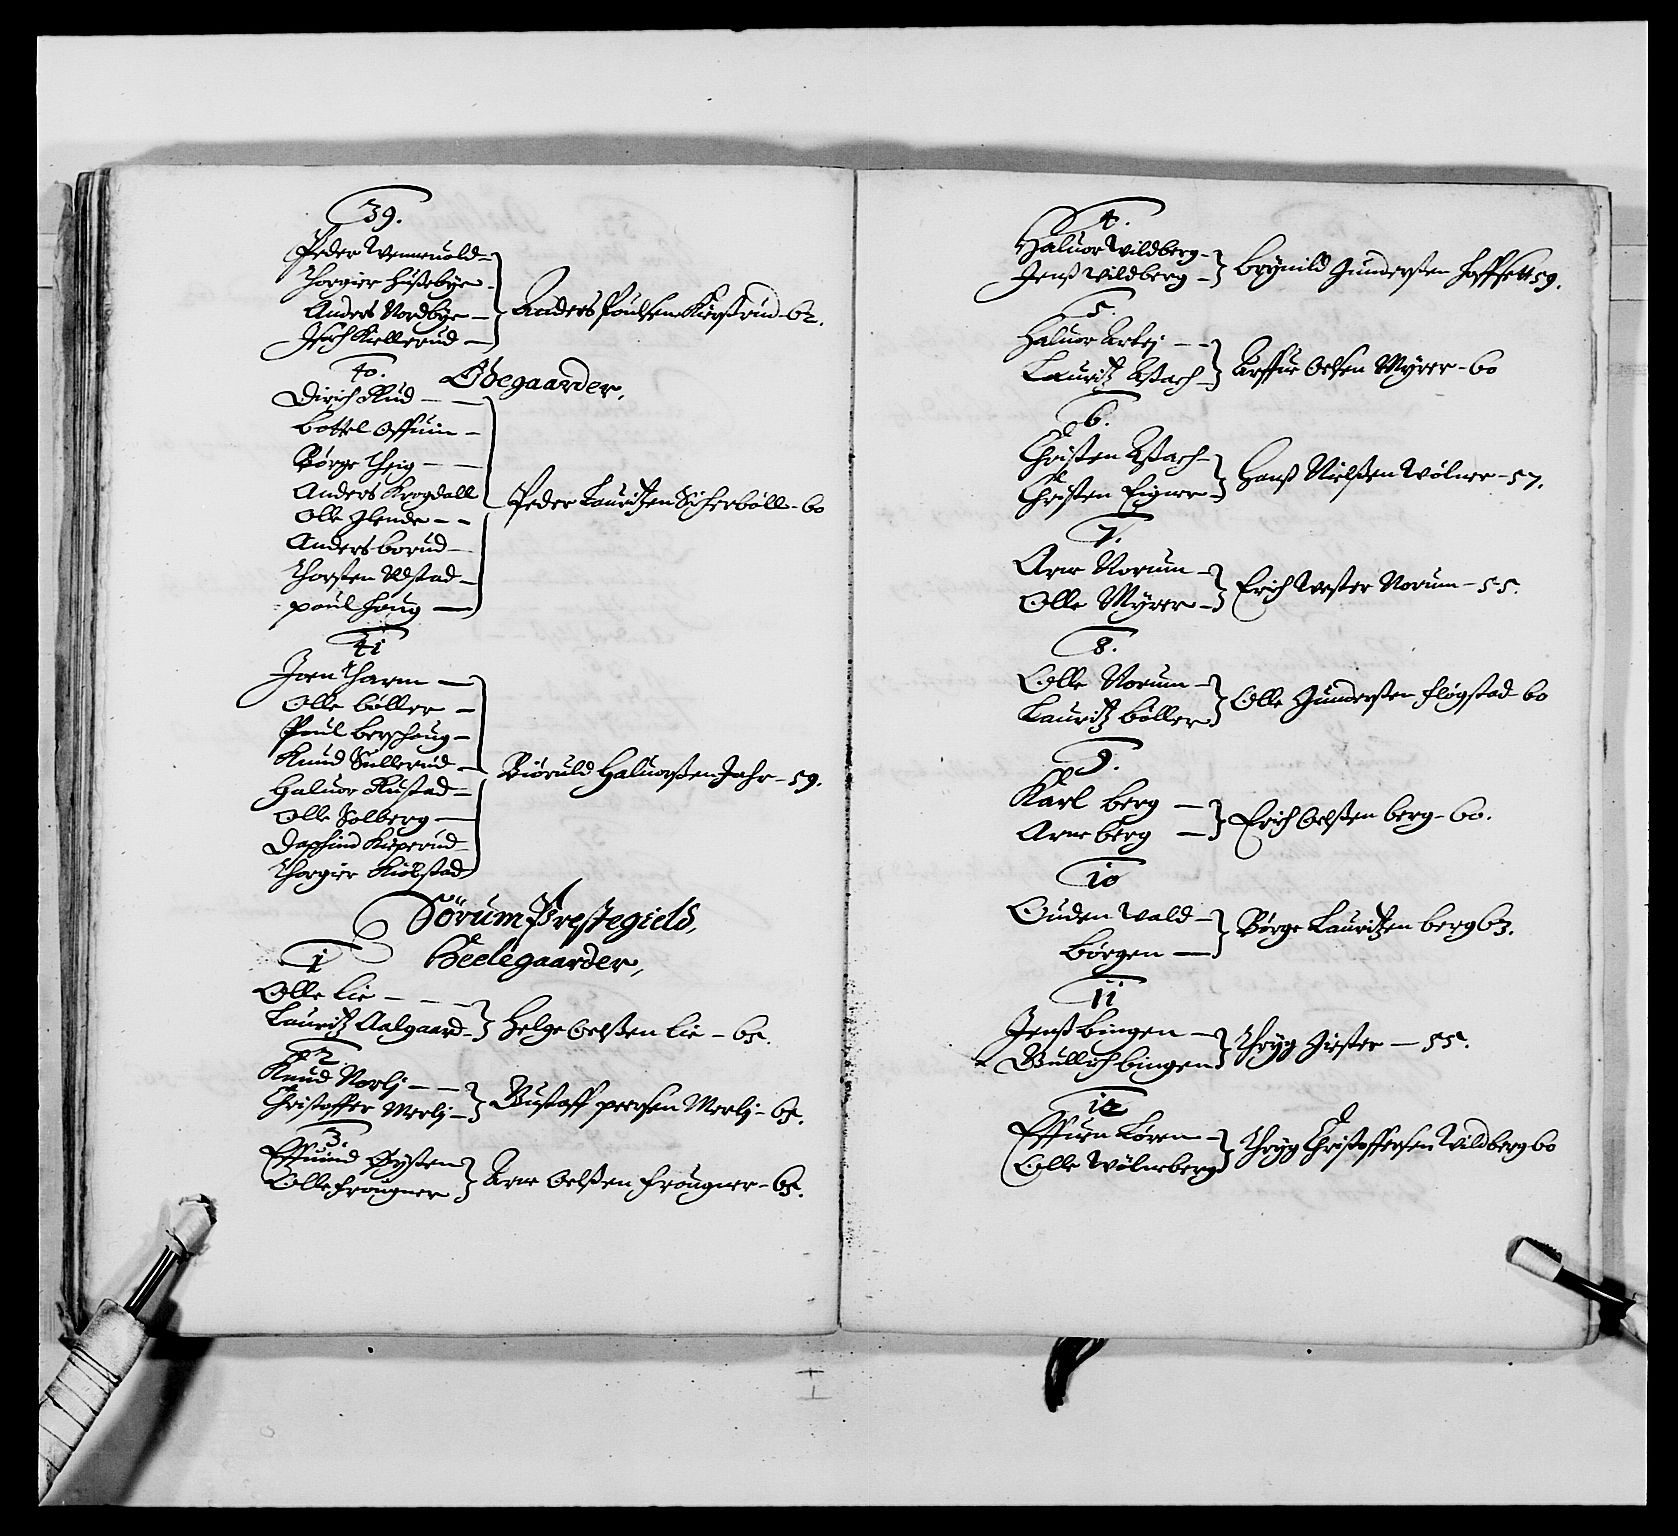 39.
Peder Wenneuold
Thorgier Hußebye
Anders Nordbye
Jerch Kiellerud
Anders Poulsen Kierstrud - 62.
40. Ødegaarder,
Dirich Rud
Bottel Offuin
Børge Theig
Anders Krogdall
Olle Glende
Anders Borud
Thorsten Ulstad
Poul Houg
Peder Lauritzen Sicherböll - 60
41
Joen Tharm
Olle Böller
Poul Berghoug
Knud Sullerud
Haluor Rustad
Olle Solberg
Daghind Kieperud
Thorgier Kiölstad
Biöruld Haluorßen Jahr - 59.
Sörum Prestegield,
Heelegaarder,
1
Olle Lie
Lauritz Aalgaard
Helge Oelßen Lie - 65.
2.
Knud Norlj
Christoffer Merlj
Gustaff Peersen Merlj - 65.
3.
Effuind Øysten
Olle Frougner
Arne Oelßen Frougner - 65.
4.
Haluor Wildberg
Jenß Wildberg
Brynild Gunderßen Hoffsett 59.
5.
Haluor Artej
Lauritz Astach
Arffue Oelsen Myrer - 60
6.
Christen Astach
Christen Eigner
Hanß Nielßen Wölner - 57.
7.
Arne Norum
Olle Myrer
Erich Wester Norum - 55.
8.
Olle Norum
Lauritz Böller
Olle Gunderßen Fløgstad 60
9.
Karl Berg
Arne Berg
Erich Oelßen Berg - 60.
10
Ouden Wald
Börgen
Börge Lauritzen Berg 63.
11
Jenß Bingen
Gullich Bingen
Thryg Giester - 55.
12
Effuen Lören
Olle Wölneberg
Thryg Christoffersen Wildberg 60